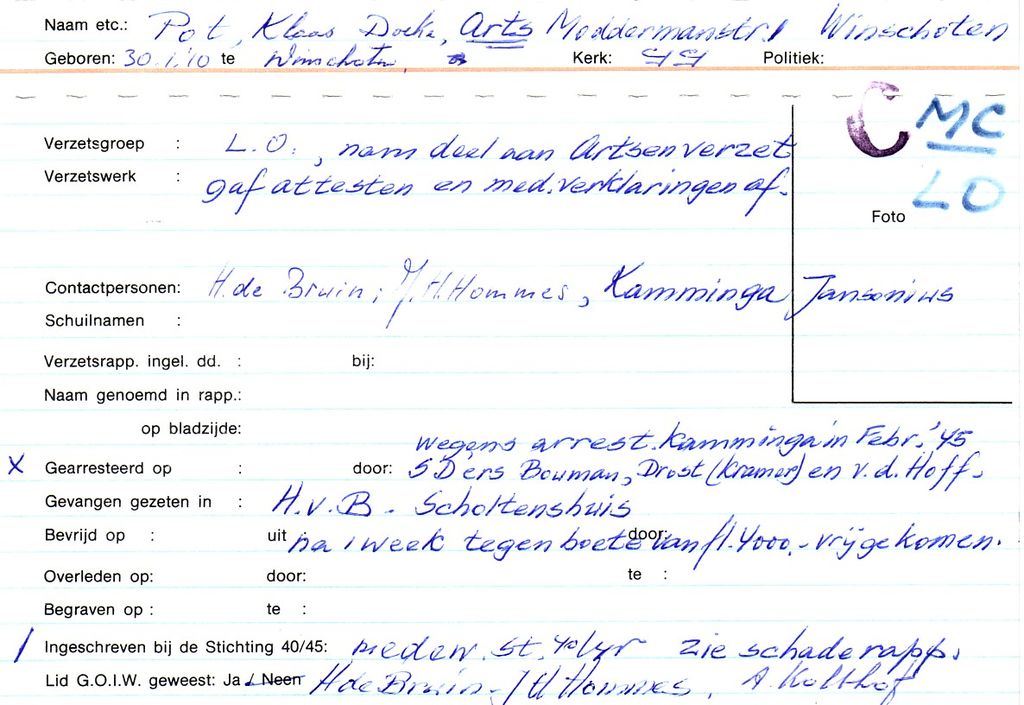 Naam etc.: Pot, Klaas Doeke, Arts Moddermanstr. Winschoten
Geboren: 30.1.'10 te Winschoten, Kerk: Politiek:
C MC
Verzetsgroep : L.O., nam deel aan Artsenverzet
Verzetswerk : gaf attesten en med. verklaringen af.
LO
Foto
Contactpersonen: H. de Bruin, H. Hommes, Kamminga Jansonius
Schuilnamen :
Verzetsrapp. ingel. dd. : bij:
Naam genoemd in rapp.:
op bladzijde:
wegens arrest. Kamminga in Febr. '45
X Gearresteerd op : door: SD'ers Bouman, Drost (Kramer) en v.d. Hoff.
Gevangen gezeten in : H.v.B - Scholtenshuis
Bevrijd op : uit door:
na 1 week tegen boete van fl. 4000,- vrijgekomen.
Overleden op: door: te :
Begraven op : te :
/ Ingeschreven bij de Stichting 40/45: medew. St. 40/45 zie schaderapp.
Lid G.O.I.W. geweest: Ja / Neen H de Bruin - H Hommes, A. Kolthof